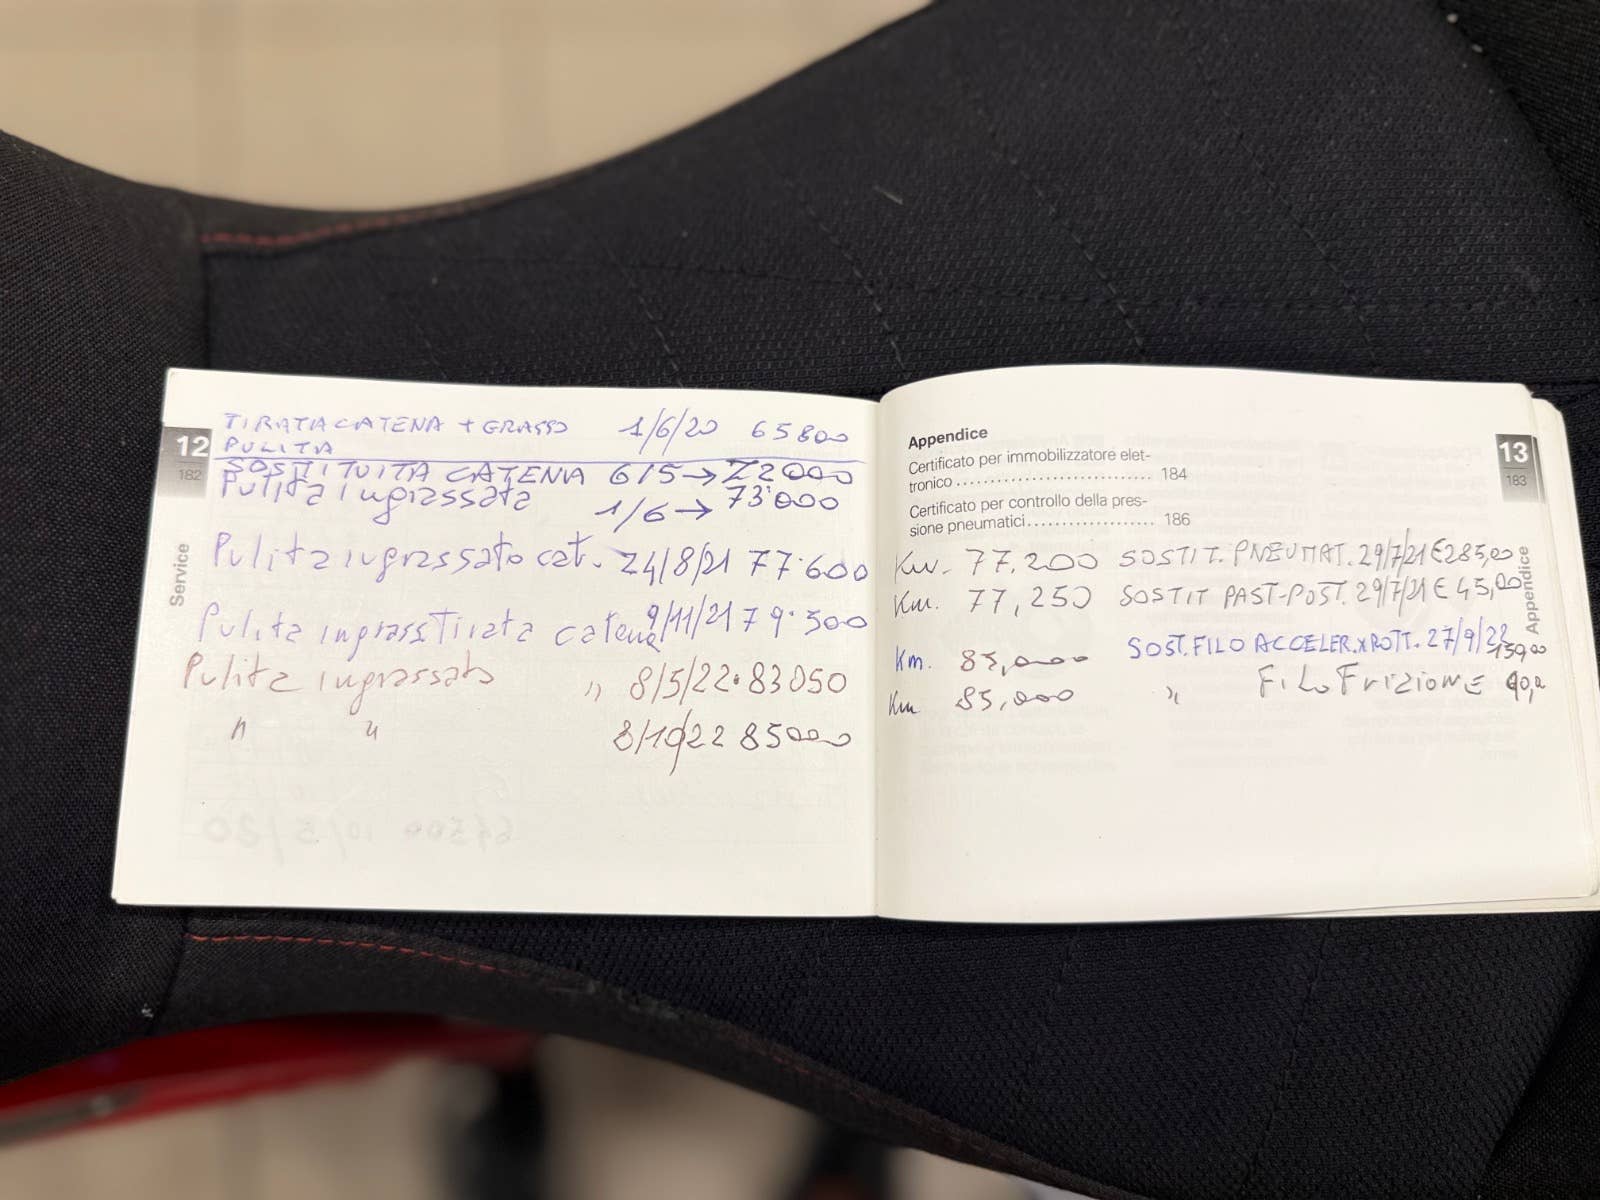 12
182
Service
TIRATA CATENA + GRASSO 1/6/20 65800
PULITA
SOSTITUITA CATENA 6/5→72000
Pulita ingrassata 1/6→73'000
Pulita ingrassato cat. 24/8/21 77.600
Pulita ingrass Tirata catena 9/11/21 79.300
Pulita ingrassato " 8/5/22.83050
" " 8/10/22 85000
Appendice
Certificato per immobilizzatore elet-
tronico ............................ 184
Certificato per controllo della pres-
sione pneumatici................... 186
13
183
Appendice
Km. 77.200 SOSTIT. PNEUMAT. 29/7/21 €285,00
Km. 77,250 SOSTIT PAST-POST. 29/7/21 € 45,00
Km. 85,000 SOST. FILO ACCELER. X ROTT. 27/9/22 150,00
Km 85,000 " FILO FRIZIONE